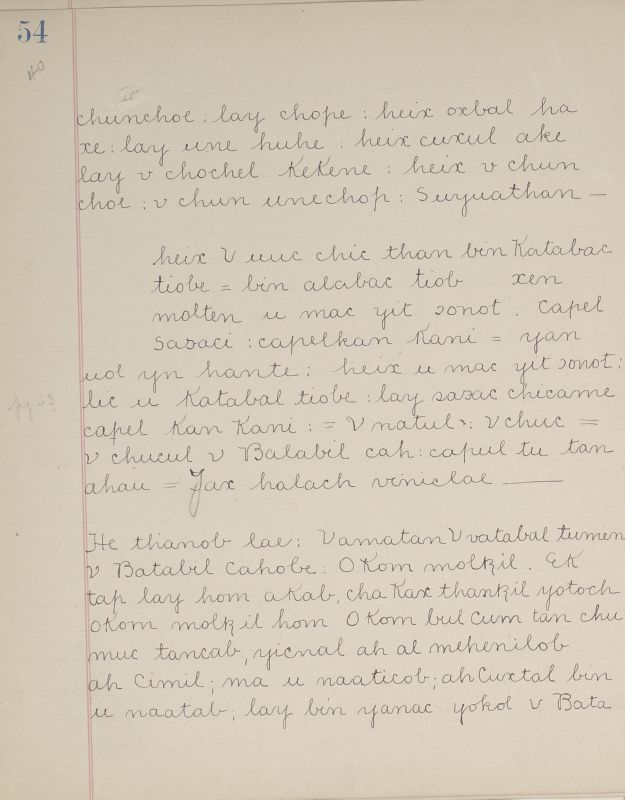 54
40
chunchoe : lay chope : heix oxbal ha
xe : lay une huhe : heix cuxul ake
lay v chochel Kekene : heix v chun
choe : v chun unechop : Suyuathan —
heix V uuc chic than bin Katabac
tiobe = bin alabac tiob xen
molten u mac yit ɔonot . Capel
Saɔaci : capelkan Kani = yan
uol yn hante : heix u mac yit ɔonot :
lic u Katabal tiobe : lay saɔac chicame
capel Kan Kani : = V natul : V chuc =
v chucul v Balabil cah : capul tu tan
ahau = Jax halach viniclae —
He thanob lae : Vamatan V vatabal tumen
v Batabil Cahobe : OKom molꜩil . EK
tap lay hom aKab, cha Kax thanꜩil yotoch
oKom molꜩil hom OKom bul Cum tan chu
muc tancab, yicnal ah al mehenilob
ah Cimil ; ma u naaticob ; ah Cuxtal bin
u naatab ; lay bin yanac yokol v Bata